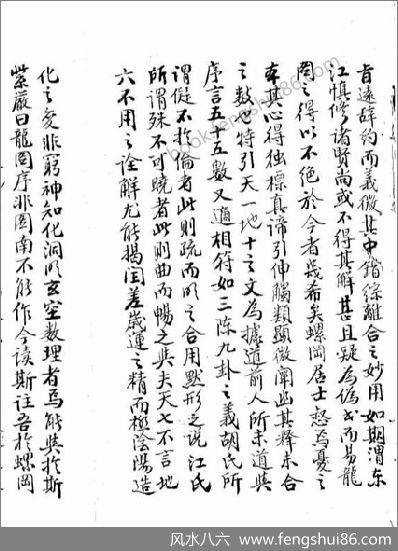 旨遠辭約而義微其中錯綜離合之妙用如期渭东
江慎修諸賢尚或不得其解甚且疑為偽書而易龍
圖之得以不絕於今者幾希矣螺岡居士怒焉憂之
本其心得独標真諦引伸觸類顯微闡幽其釋未合
之数也特引天一地十之文為據道前人所未道其
序言五十五數又適相符如三陈九卦之義胡氏所
謂儗不於倫者此則疏而明之合用默形之說江氏
所謂殊不可曉者此則曲而暢之與夫天七不言地
六不用之詮解尤能揭閏差歲運之精而極陰陽造
化之变非窮神知化洞明玄空数理者烏能與於斯
紫巖曰龍圖序非圖南不能作今讀斯註吾於螺岡
bookfengshui86.com
风水八六－www.fengshui86.com